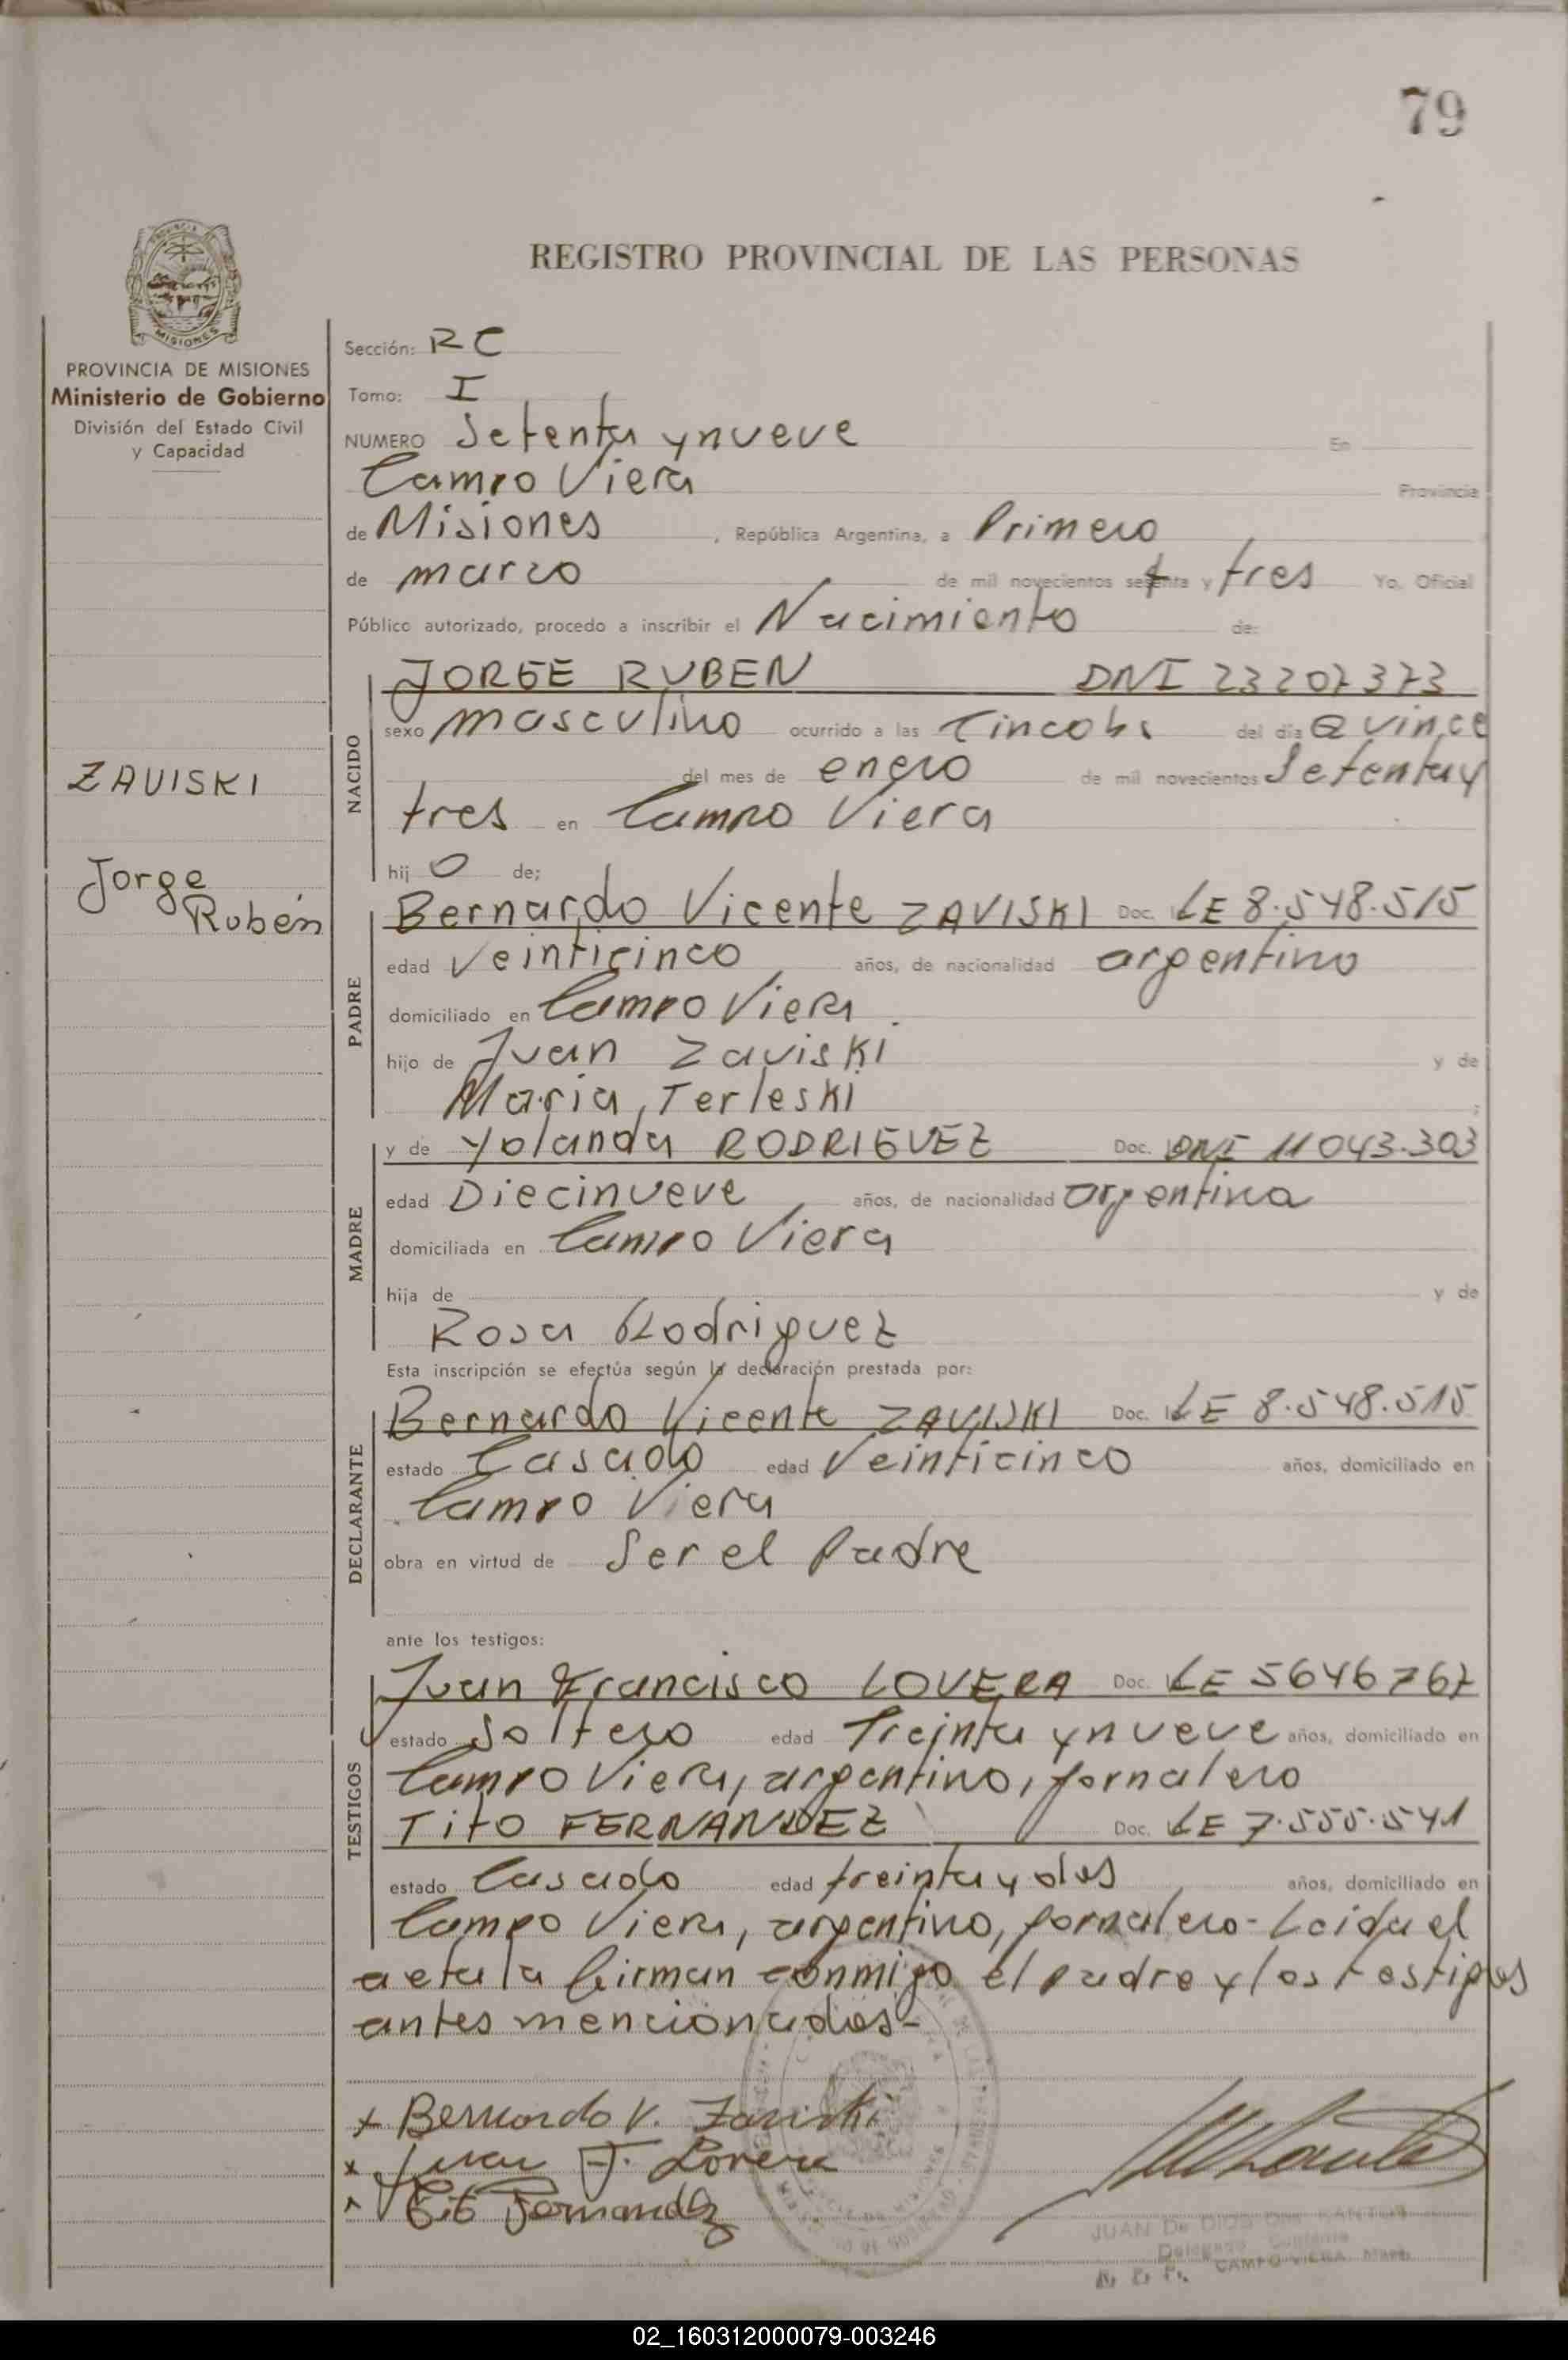 79
PROVINCIA DE
MISIONES
REGISTRO PROVINCIAL DE LAS PERSONAS
PROVINCIA DE MISIONES
Ministerio de Gobierno
División del Estado Civil
y Capacidad
ZAVISKI
Jorge
Rubén
Sección: RC
Tomo: I
NUMERO Setenta y nueve En
Campo Viera Provincia
de Misiones, República Argentina, a Primero
de marzo de mil novecientos setenta y tres Yo, Oficial
Público autorizado, procedo a inscribir el Nacimiento de:
NACIDO
JORGE RUBEN DNI 23207373
sexo masculino ocurrido a las Cinco hs del día Quince
del mes de enero de mil novecientos Setenta y
tres en Campo Viera
hijo de;
PADRE
Bernardo Vicente ZAVISKI Doc. LE 8.548.515
edad Veinticinco años, de nacionalidad argentino
domiciliado en Campo Viera
hijo de Juan Zaviski y de
Maria Terleski
MADRE
y de Yolanda RODRIGUEZ Doc. DNI 11043.303
edad Diecinueve años, de nacionalidad argentina
domiciliada en Campo Viera
hija de y de
Rosa Rodriguez
Esta inscripción se efectúa según la declaración prestada por:
DECLARANTE
Bernardo Vicente ZAVISKI Doc. LE 8.548.515
estado Casado edad Veinticinco años, domiciliado en
Campo Viera
obra en virtud de Ser el Padre
ante los testigos:
TESTIGOS
Juan Francisco LOVERA Doc. LE 5646767
estado Soltero edad Treinta y nueve años, domiciliado en
Campo Viera, argentino, jornalero
Tito FERNANDEZ Doc. LE 7.555.541
estado Casado edad treinta y dos años, domiciliado en
Campo Viera, argentino, jornalero - Leida el
acta la firman conmigo el padre y los testigos
antes mencionados-
x Bernardo V. Zaviski
x Juan F. Lovera
Tito Fernandez
JUAN De DIOS
Delegado
CAMPO VIERA
02_160312000079-003246